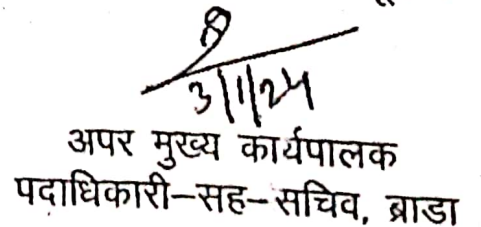 3/1/24
अपर मुख्य कार्यपालक
पदाधिकारी-सह-सचिव, ब्राडा